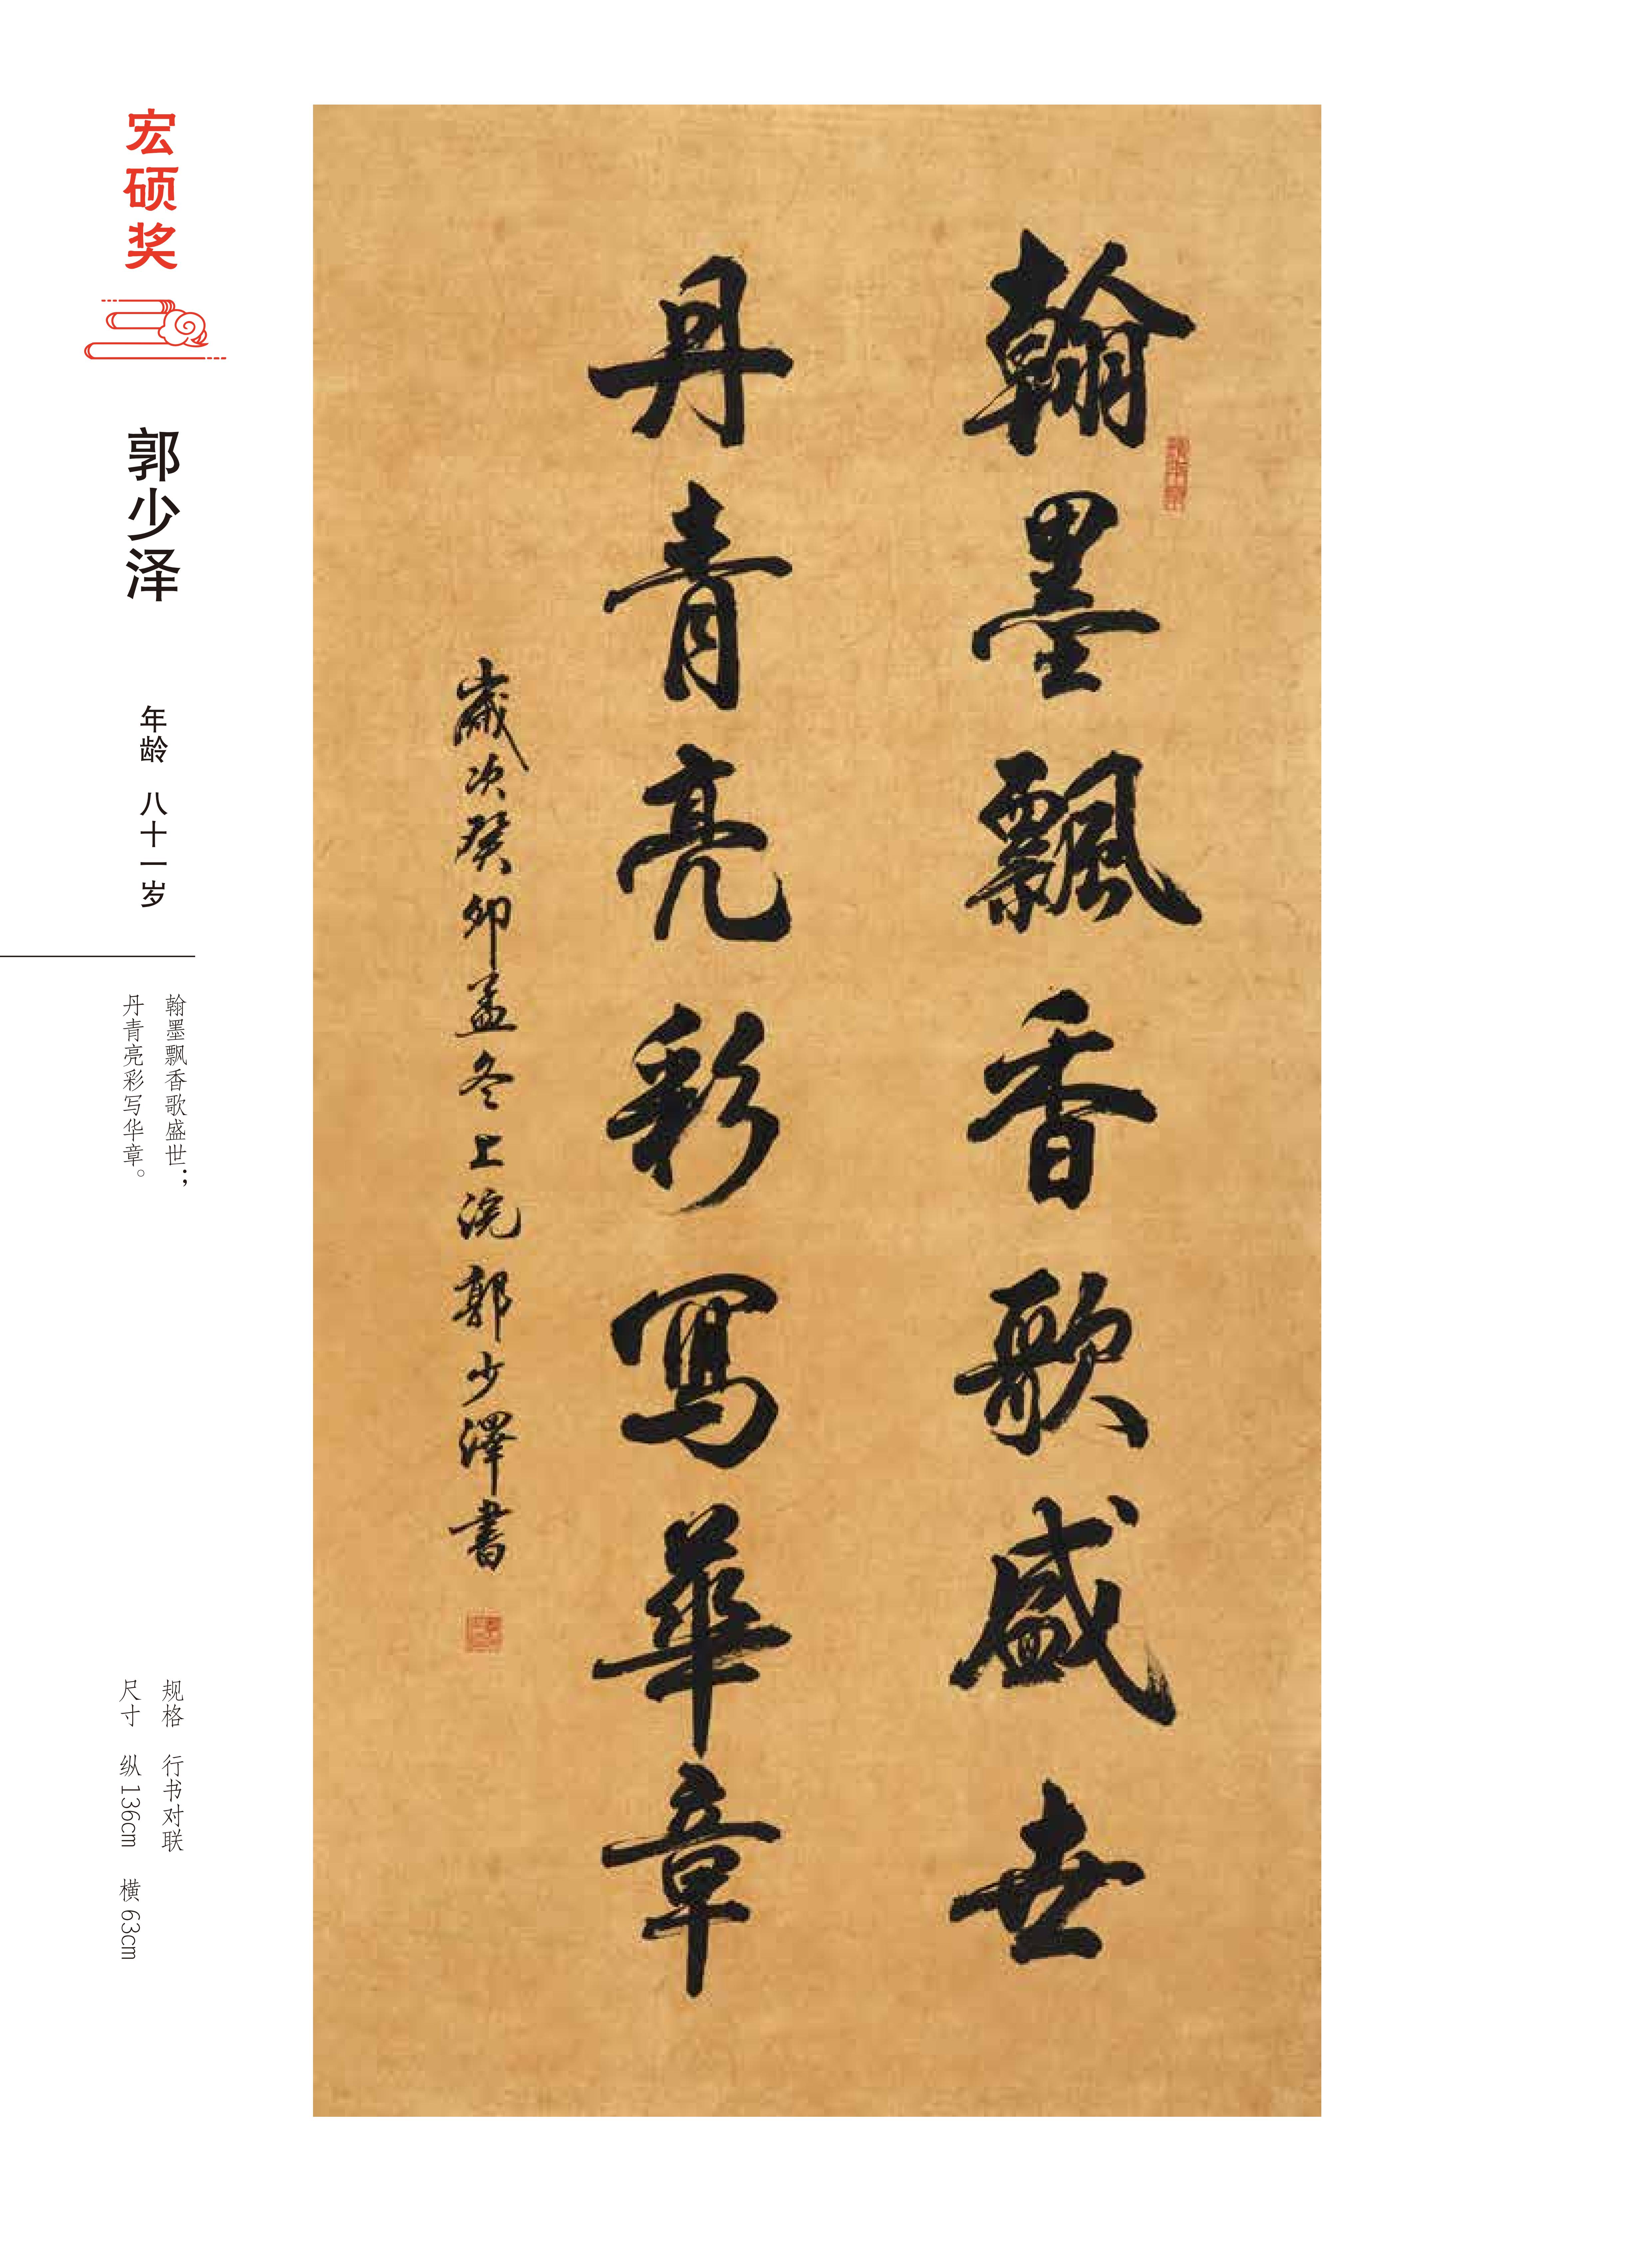 宏硕奖
郭少泽
年龄 八十一岁
翰墨飘香歌盛世；
丹青亮彩写华章。
规格 行书对联
尺寸 纵136cm 横63cm
翰墨飄香歌盛世
丹青亮彩寫華章
歲次癸卯孟冬上浣郭少澤書